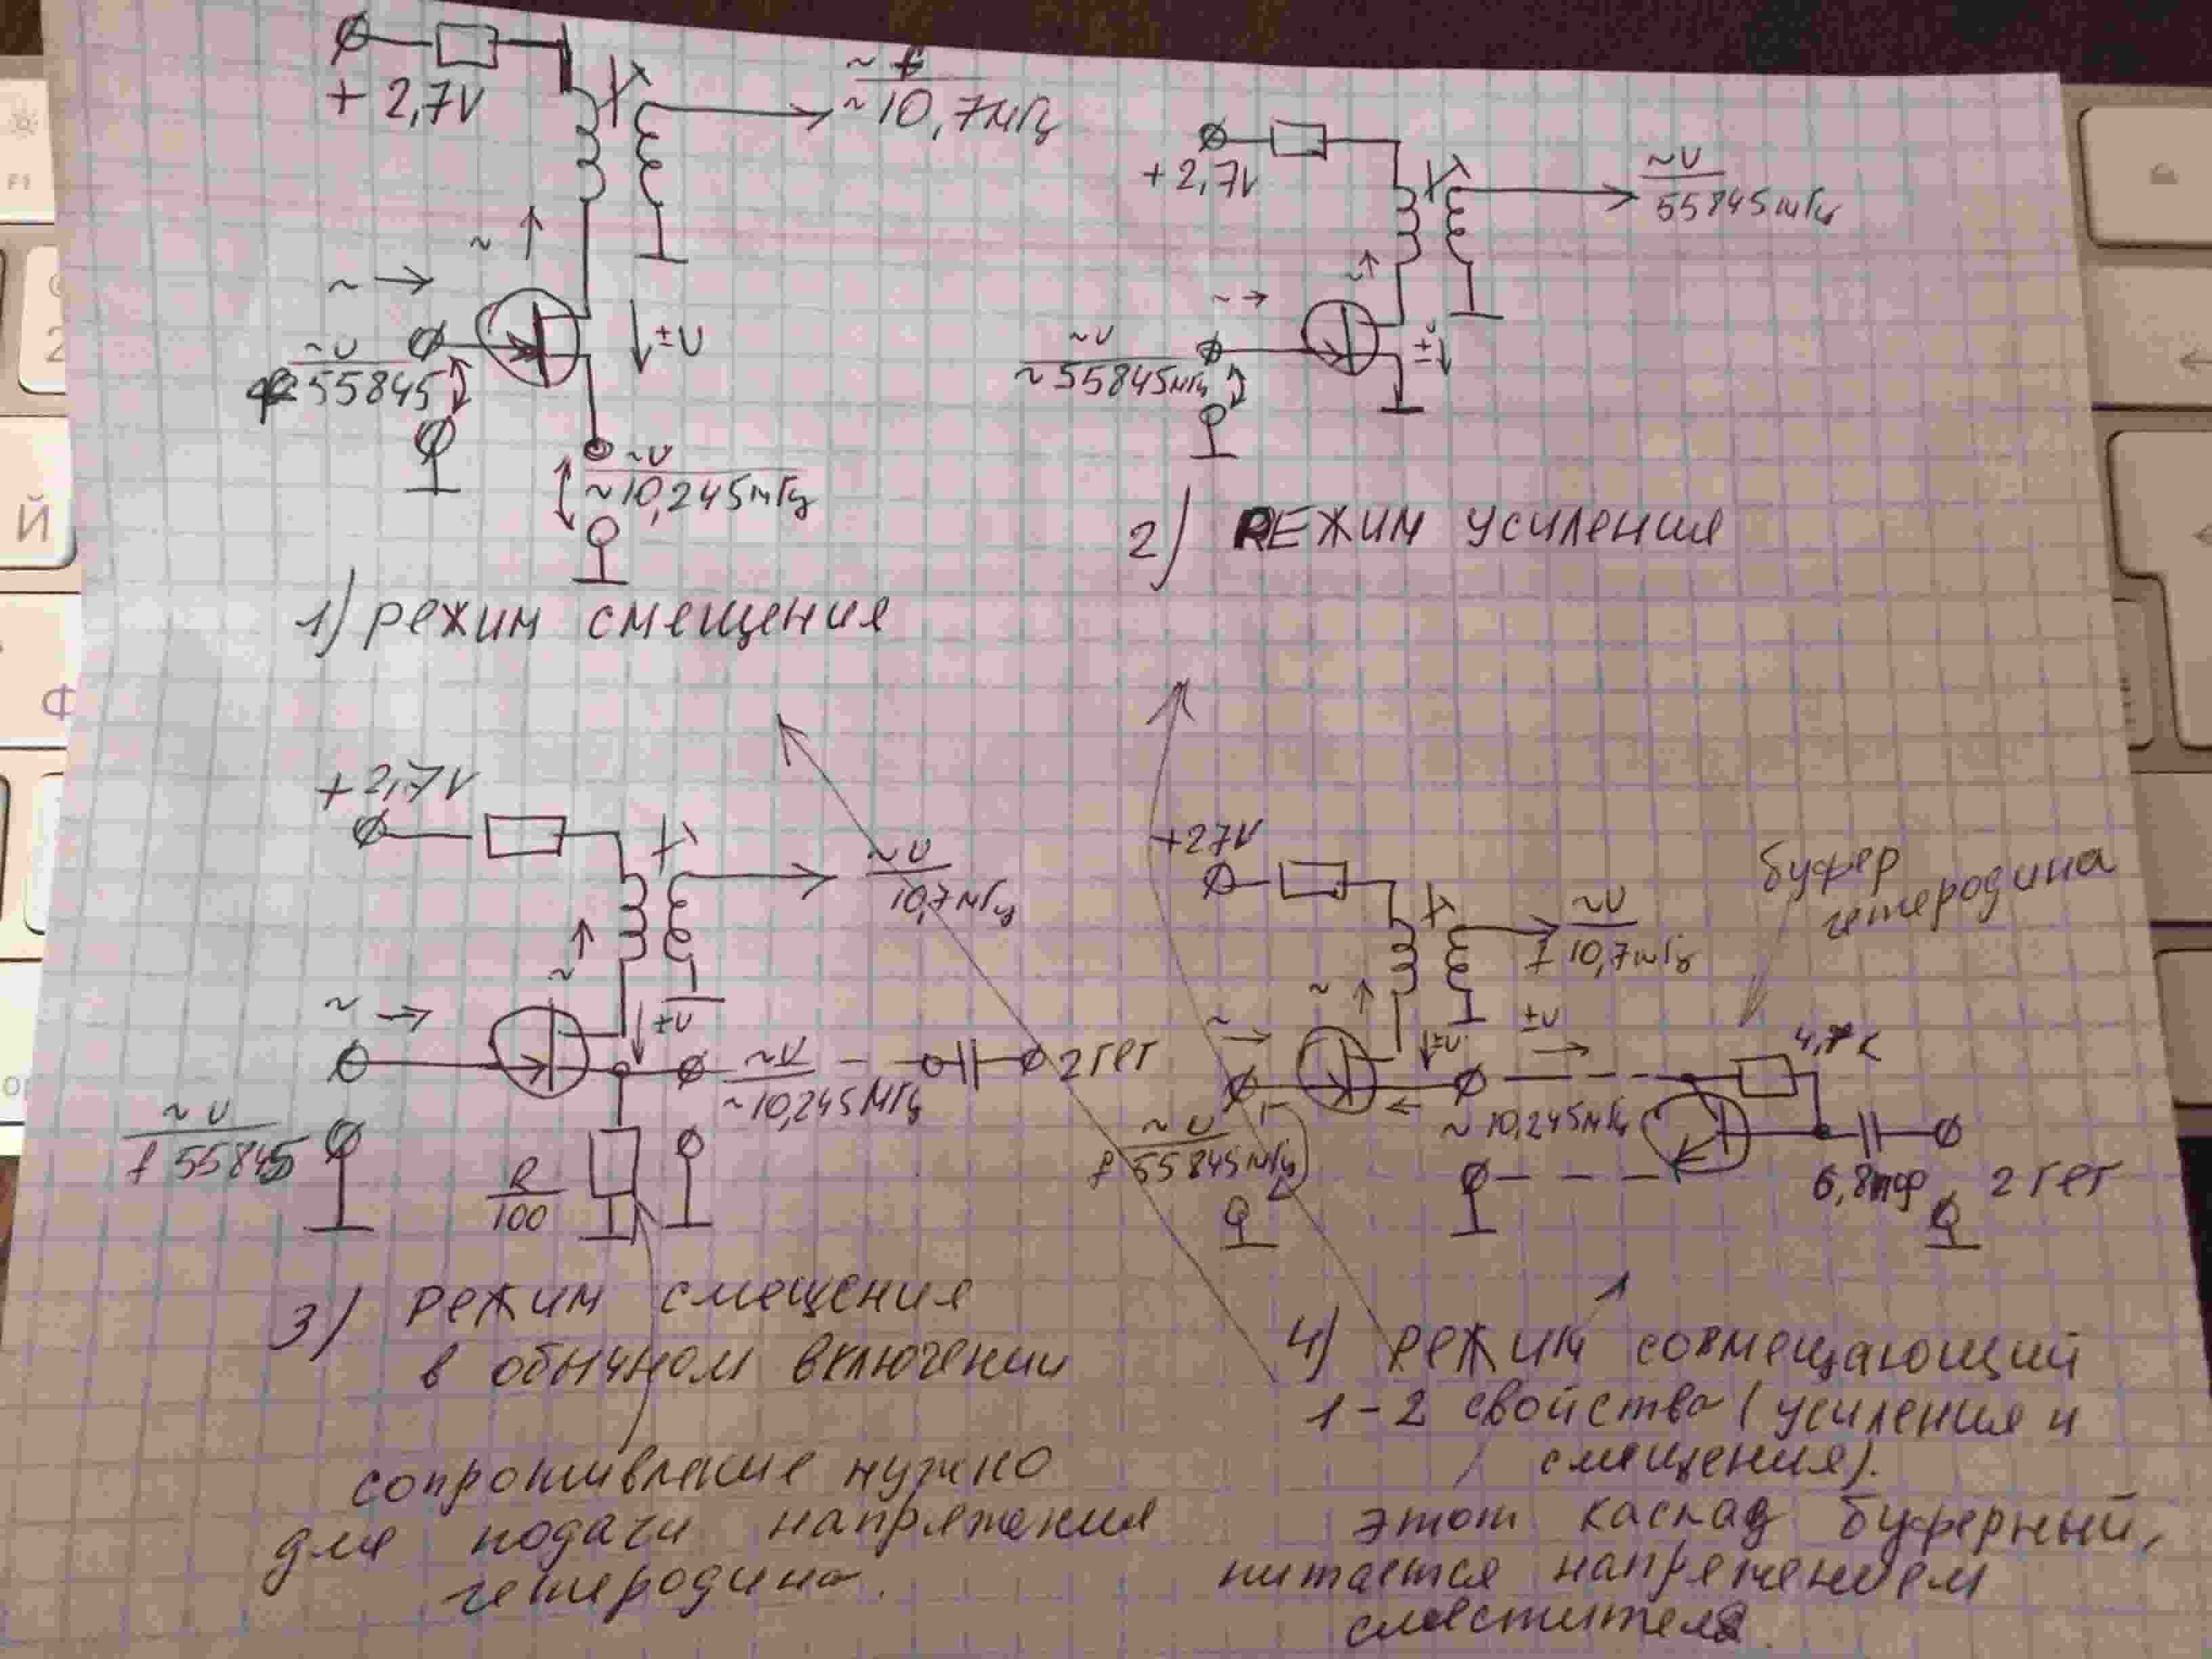 + 2,7V
~ f
~ 10,7мГц
~
~ →
~U
55845
±U
~U
~10,245мГц
1) режим смещения
+2,7V
~U
55845мГц
~
~ →
~U
~55845мГц
±
2) РЕЖИМ усиления
+2,7V
~U
10,7мГц
~
~ →
±U
~U
~10,245МГц
2 гет
~U
f 55845
R
100
3) режим смещения
в обычном включении
сопротивление нужно
для подачи напряжения
гетеродина.
+27V
буфер
гетеродина
~U
f 10,7мГц
~
~
±U
±U
4,7к
~10,245мГц
~U
f 55845мГц
6,8пф
2 гет
4) режим совмещающий
1-2 свойства (усиления и
смещения).
этот каскад буферный,
питается напряжением
смесителя.